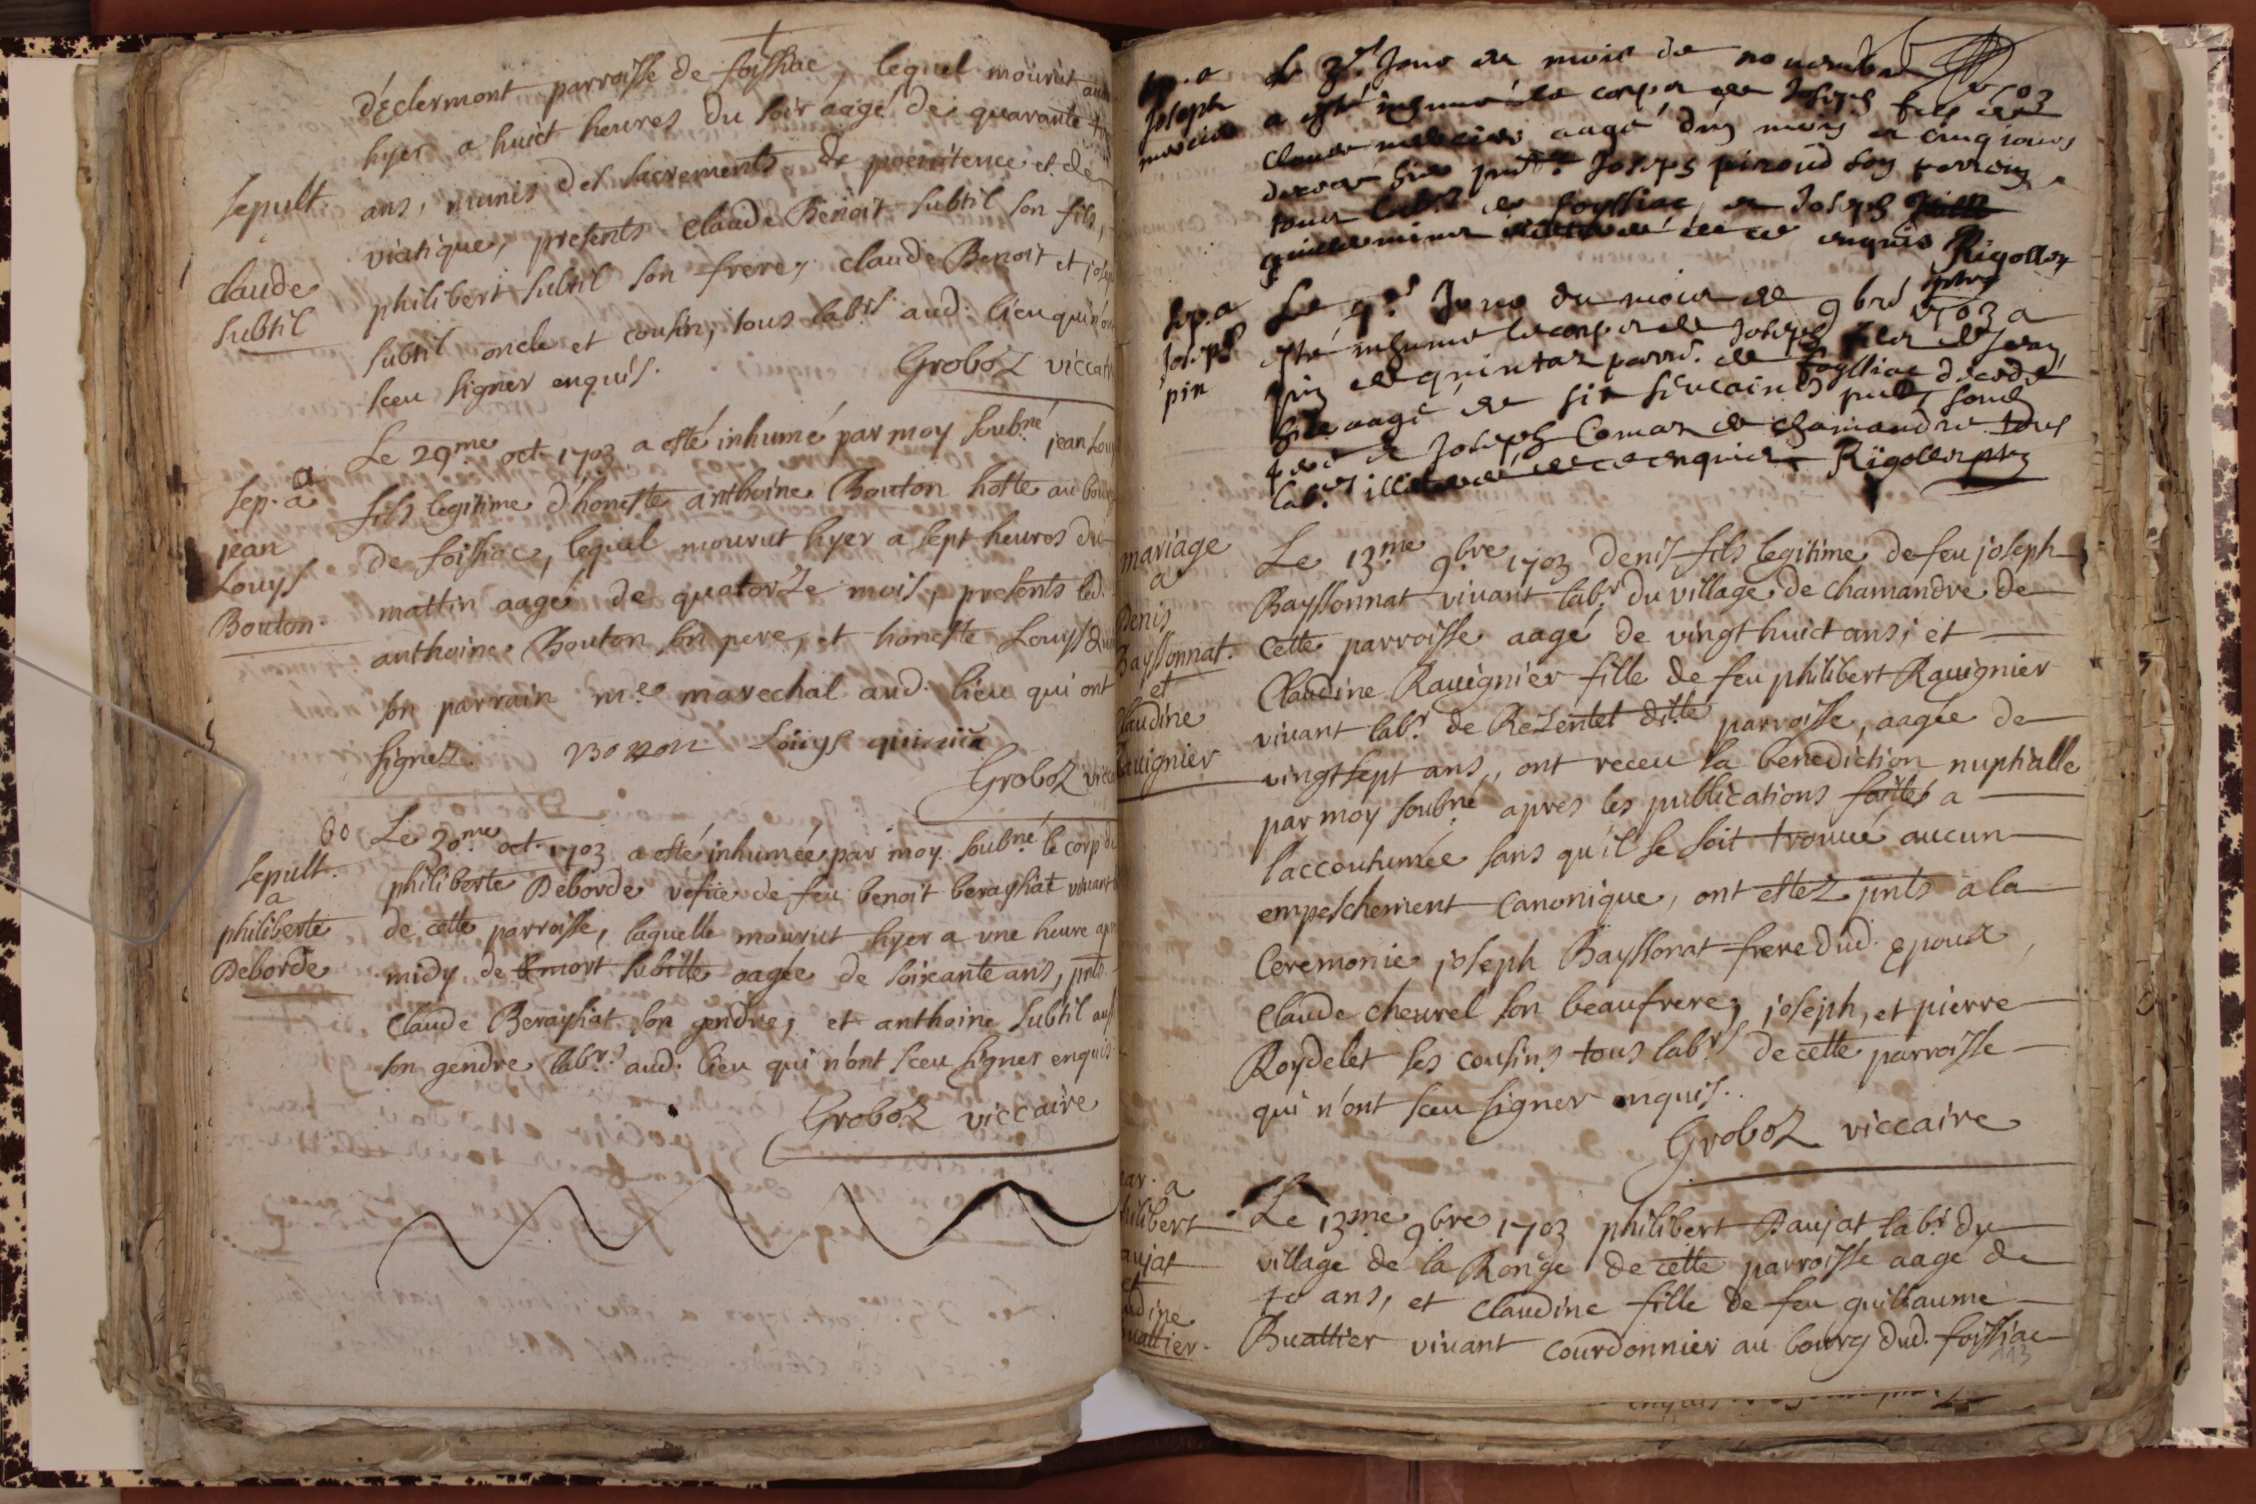 d'éclermont parroisse de foissiac, lequel mourut
hyer a huict heures du soir aagé de quarante
ans, munis des sacrements de pœnitence et de
viatique, presents Claude Benoit subtil son fils,
philibert subtil son frere, claude Benoit et
subtil oncle et cousin, tous labrs aud. lieu qui n'ont
sceu signer enquis.
Groboz viccaire
sepult.
claude
subtil
Le 29me oct. 1703 a esté inhumé par moy soubné jean Louys
fils legitime d'honeste anthoine Bouton hoste au bourg
de foissiac, lequel mourut hyer a sept heures du
mattin aagé de quatorze mois, presents led.
anthoine Bouton son pere, et honeste Louys
son parrain me marechal aud. lieu qui ont
signez. Bouton Louys
Groboz
sep. a
jean
Louys
Bouton.
Le 30.me oct. 1703 a esté inhumée par moy soubné le corp
philiberte Deborde vefue de feu benoit berayhat viuant
de cette parroisse, laquelle mourut hyer a vne heure
midy de mort subitte aagée de soixante ans, pnts
Claude Berayhat son gendre, et anthoine subtil
son gendre labrs aud. lieu qui n'ont sceu signer enquis
Groboz viccaire
sepult.
a
philiberte
Deborde
Joseph
Le 3e Jour du mois de nouembre 1703
a esté inhumé le corps de Joseph fils de
claude mercier aagé dun mois et cinq iours
Joseph piroud son parrain
tous labrs de foyssiac et Joseph
enquis Rigollet
sep. a
Joseph
pin
Le 9e Jour du mois de 9bre 1703 a
esté inhumé le corps de Joseph fils de Jean
pin de quintaz parrse de foyssiac decedé
hier aagé de six sepmaines
et Joseph Comaz de chamandre tous
labrs enquis Rigollet ptre
mariage
a
Denis
Bayssonnat.
et
Claudine
Rauignier
Le 13.me 9.bre 1703 denis fils legitime de feu joseph
Bayssonnat viuant labr. du village de chamandre de
cette parroisse aagé de vingt huict ans, et
Claudine Rauignier fille de feu philibert Rauignier
viuant labr. de Rezentel ditte parroisse, aagée de
vingt sept ans, ont receu la benediction nuptialle
par moy soubné apres les publications faittes a
l'accoutumée sans qu'il se soit trouué aucun
empeschement canonique, ont estez pnts a la
ceremonie joseph Bayssonat frere dud. epoux,
Claude cheurel son beaufrere, joseph, et pierre
Roydelet ses cousins tous labrs de cette parroisse
qui n'ont sceu signer enquis.
Groboz viccaire
mar. a
philibert
Daujat
et
Claudine
Buattier.
Le 13me 9bre 1703 philibert Daujat labr. du
village de la Ronge de cette parroisse aage de
ans, et Claudine fille de feu guillaume
Buattier viuant courdonnier au bourg dud. foissiac
113